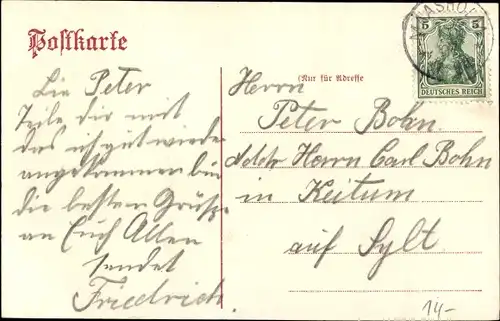 Postkarte
Lie Peter
Teile dir mit
das ich gut wieder
angekommen bin
die besten Grüße
an Euch Allen
sendet
Friedrich.
(Nur für Adresse)
Herrn
Peter Bohn.
Herrn Carl Bohn
in Keitum
auf Sylt
5 5
DEUTSCHES REICH
14-